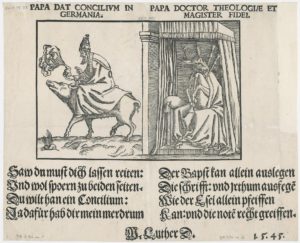 PAPA DAT CONCILIVM IN
GERMANIA.
PAPA DOCTOR THEOLOGIAE ET
MAGISTER FIDEI.
Saw du must dich lassen reiten:
Und wol sporn zu beiden seiten.
Du wilt han ein Concilium:
Ja dafür hab dir mein merdrum
Der Bapst kan allein auslegen
Die schrifft: und jrthum ausfege
Wie der Esel allein pfeiffen
Kan: und die note recht greiffen.
M. Luther D.
1545.